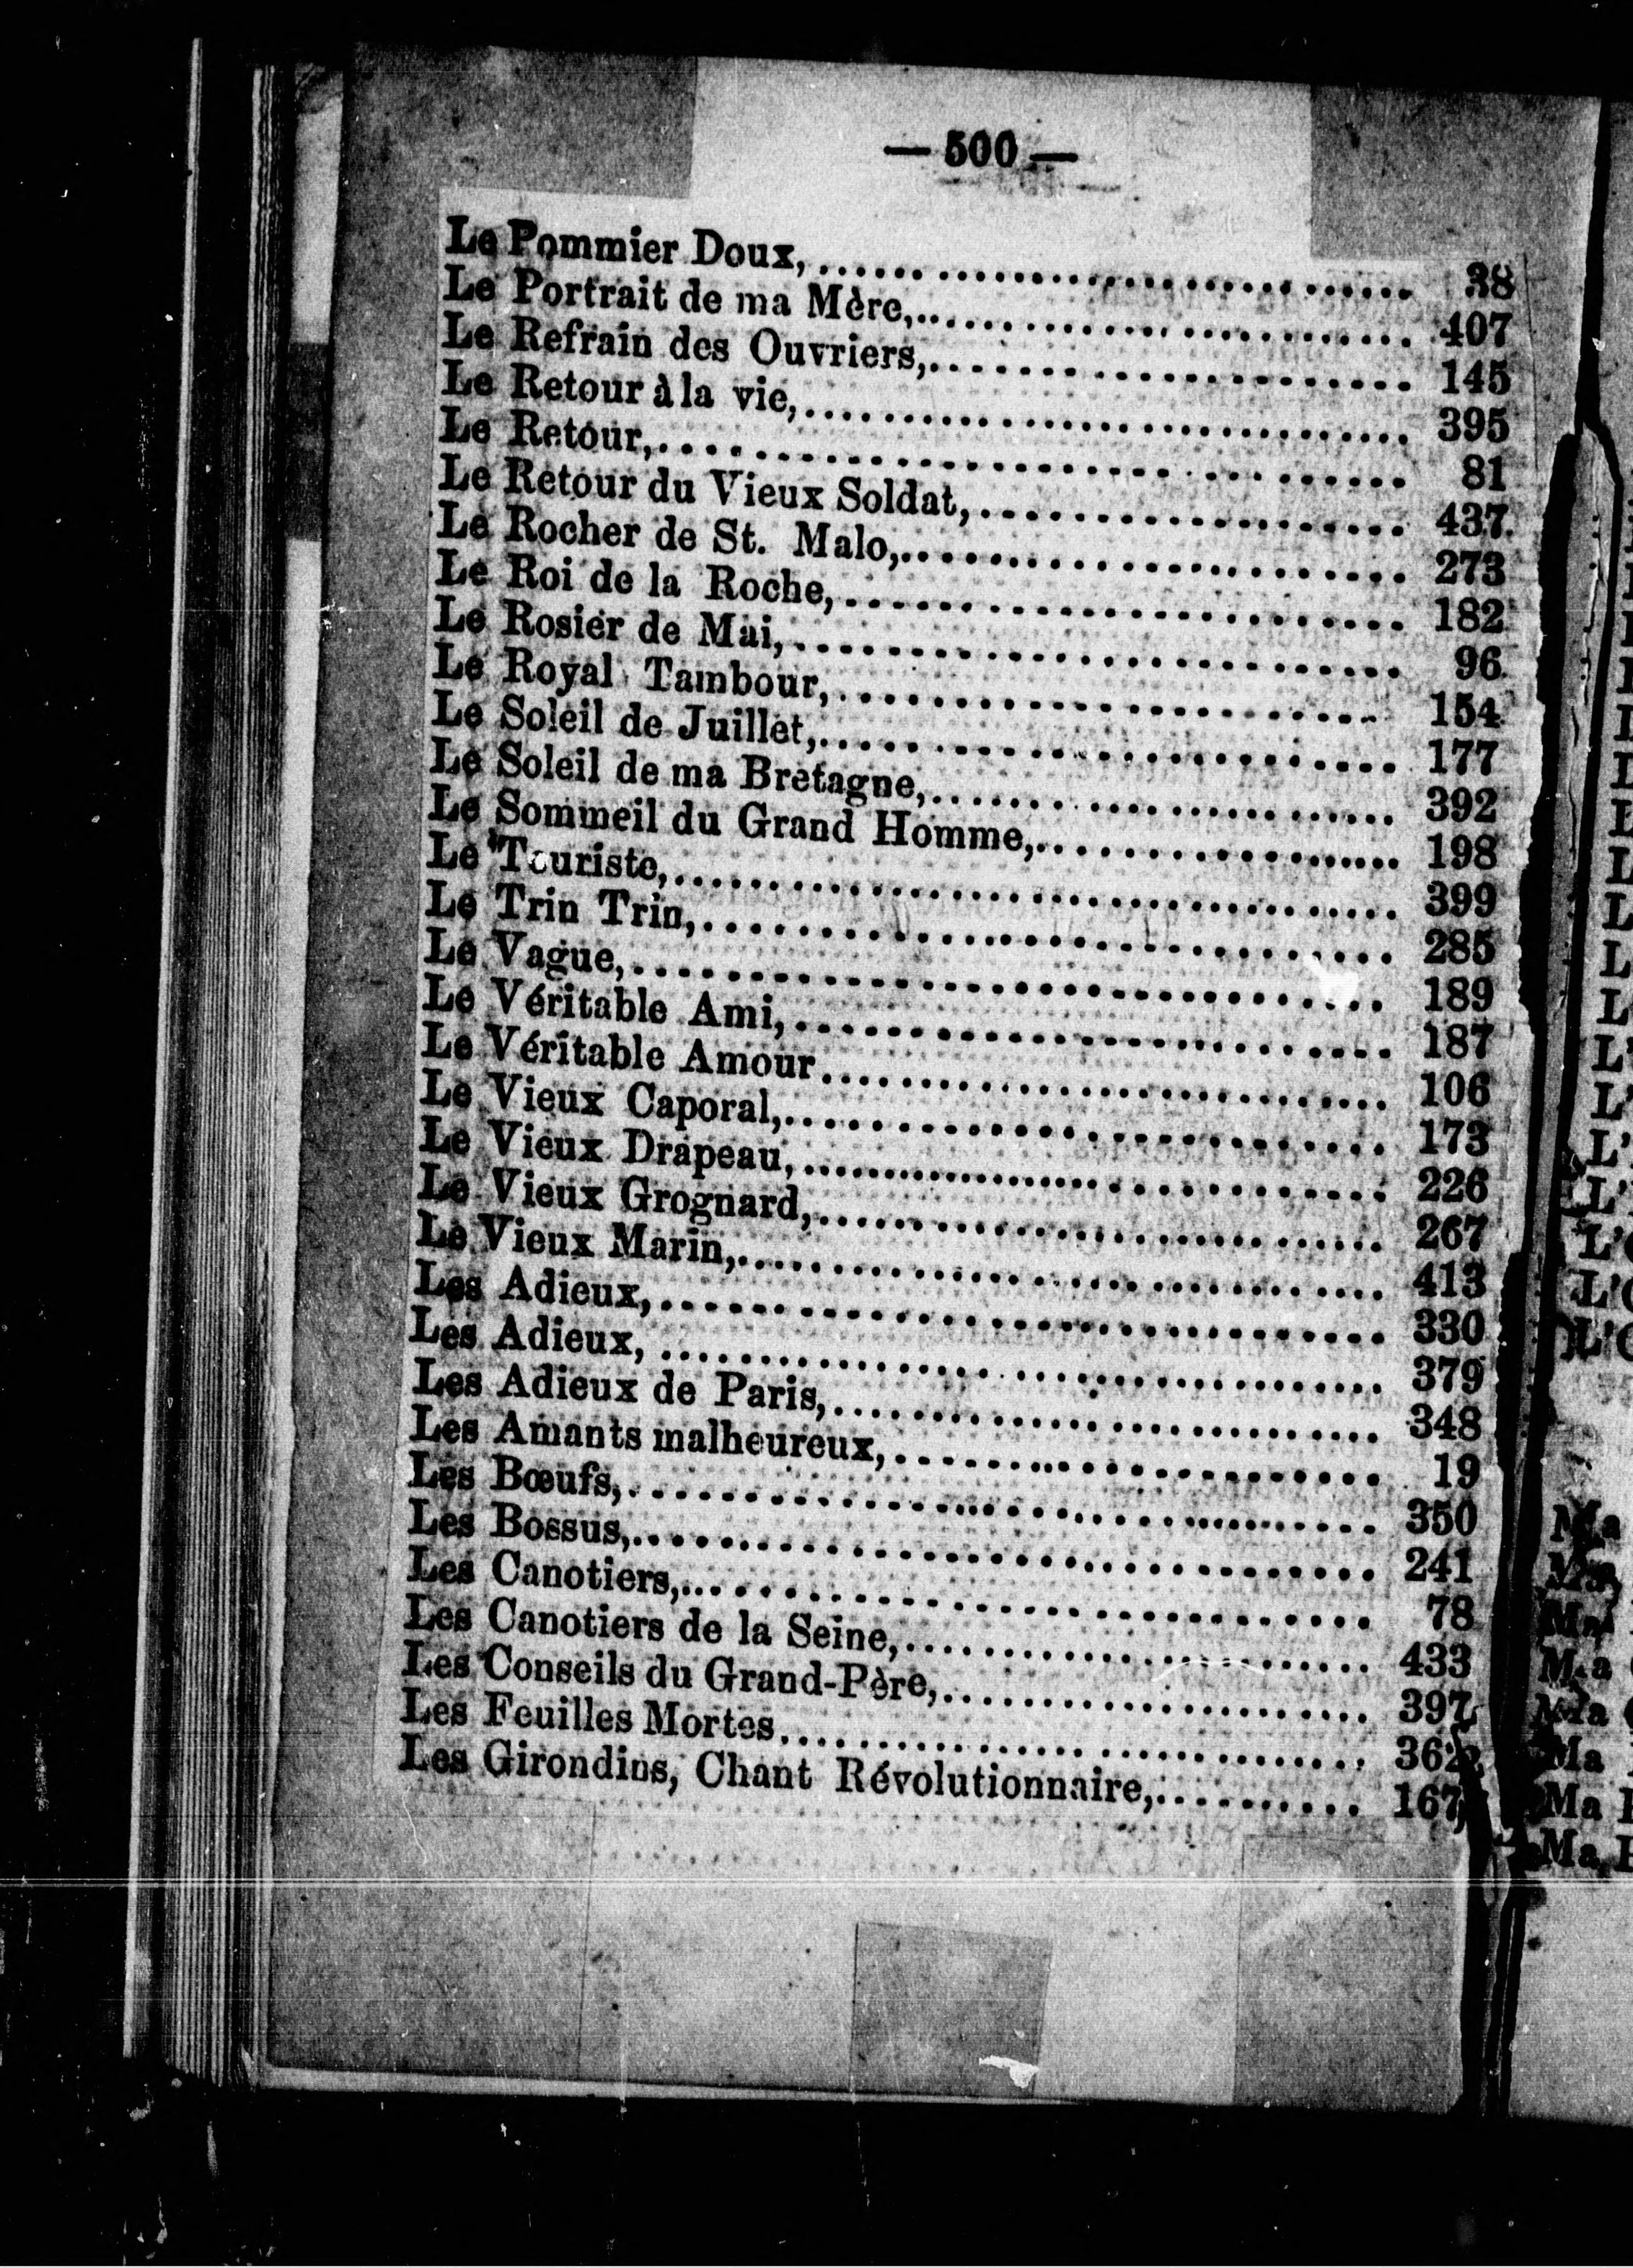 — 500 —
Le Pommier Doux, ........ 38
Le Portrait de ma Mère, ........ 407
Le Refrain des Ouvriers, ........ 145
Le Retour à la vie, ........ 395
Le Retour, ........ 81
Le Retour du Vieux Soldat, ........ 437
Le Rocher de St. Malo, ........ 273
Le Roi de la Roche, ........ 182
Le Rosier de Mai, ........ 96
Le Royal Tambour, ........ 154
Le Soleil de Juillet, ........ 177
Le Soleil de ma Bretagne, ........ 392
Le Sommeil du Grand Homme, ........ 198
Le Touriste, ........ 399
Le Trin Trin, ........ 285
Le Vague, ........ 189
Le Véritable Ami, ........ 187
Le Véritable Amour ........ 106
Le Vieux Caporal, ........ 173
Le Vieux Drapeau, ........ 226
Le Vieux Grognard, ........ 267
Le Vieux Marin, ........ 413
Les Adieux, ........ 330
Les Adieux, ........ 379
Les Adieux de Paris, ........ 348
Les Amants malheureux, ........ 19
Les Bœufs, ........ 350
Les Bossus, ........ 241
Les Canotiers, ........ 78
Les Canotiers de la Seine, ........ 433
Les Conseils du Grand-Père, ........ 397
Les Feuilles Mortes ........ 362
Les Girondins, Chant Révolutionnaire, ........ 167